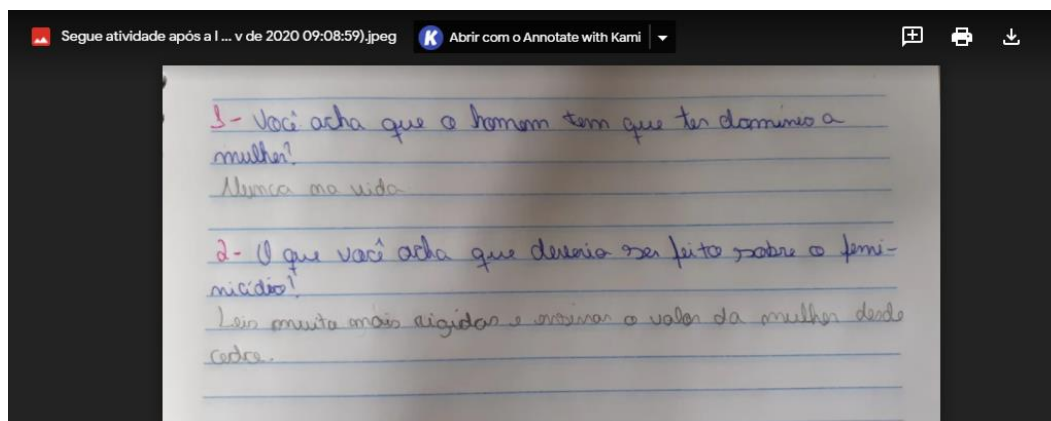 Segue atividade após a l ... v de 2020 09:08:59).jpeg
Abrir com o Annotate with Kami
1- Você acha que o homem tem que ter domínio a
mulher?
Nunca na vida
2- O que você acha que deveria ser feito sobre o femi-
nicídio?
Leis muita mais rigidas e ensinar o valor da mulher desde
cedre.